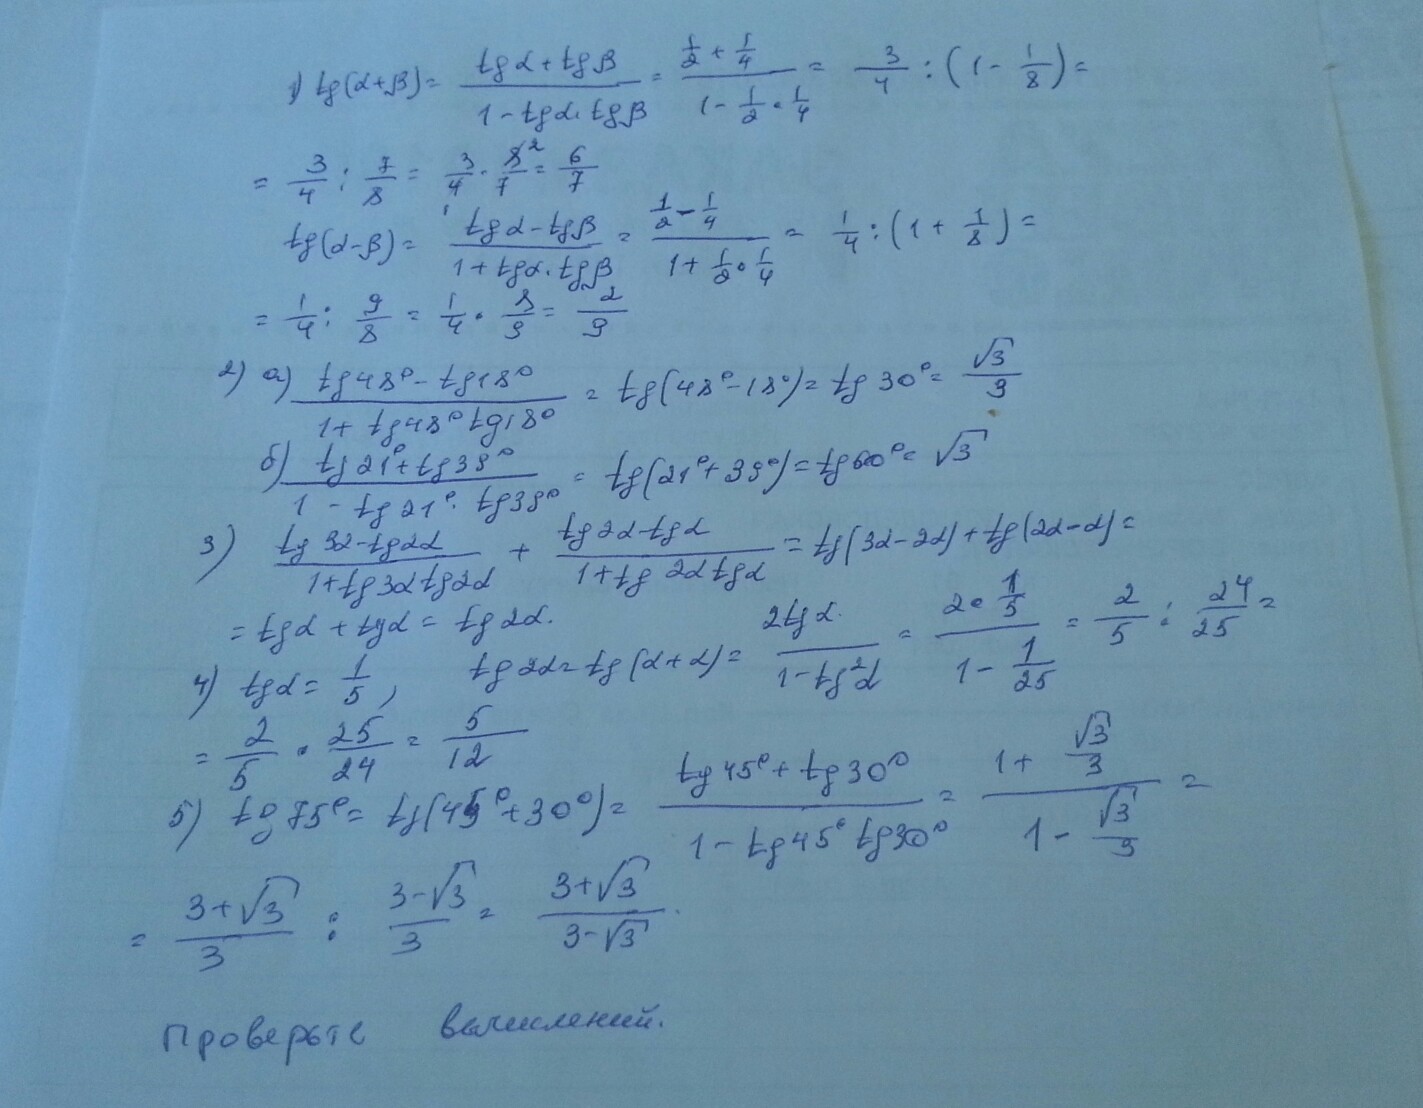 1) tg(α+β) = (tgα + tgβ)/(1 - tgα·tgβ) = (1/2 + 1/4)/(1 - 1/2 · 1/4) = 3/4 : (1 - 1/8) =
= 3/4 : 7/8 = 3/4 · 8²/7 = 6/7
tg(α-β) = (tgα - tgβ)/(1 + tgα·tgβ) = (1/2 - 1/4)/(1 + 1/2 · 1/4) = 1/4 : (1 + 1/8) =
= 1/4 : 9/8 = 1/4 · 8/9 = 2/9
2) а) (tg48° - tg18°)/(1 + tg48° tg18°) = tg(48° - 18°) = tg 30° = √3/3
б) (tg21° + tg39°)/(1 - tg21° · tg39°) = tg(21° + 39°) = tg60° = √3
3) (tg3α - tg2α)/(1 + tg3α tg2α) + (tg2α - tgα)/(1 + tg2α tgα) = tg(3α - 2α) + tg(2α - α) =
= tgα + tgα = tg2α.
4) tgα = 1/5, tg2α = tg(α + α) = 2tgα/(1 - tg²α) = (2 · 1/5)/(1 - 1/25) = 2/5 : 24/25 =
= 2/5 · 25/24 = 5/12
5) tg75° = tg(45° + 30°) = (tg45° + tg30°)/(1 - tg45° tg30°) = (1 + √3/3)/(1 - √3/3) =
= (3+√3)/3 : (3-√3)/3 = (3+√3)/(3-√3).
Проверьте вычислений.